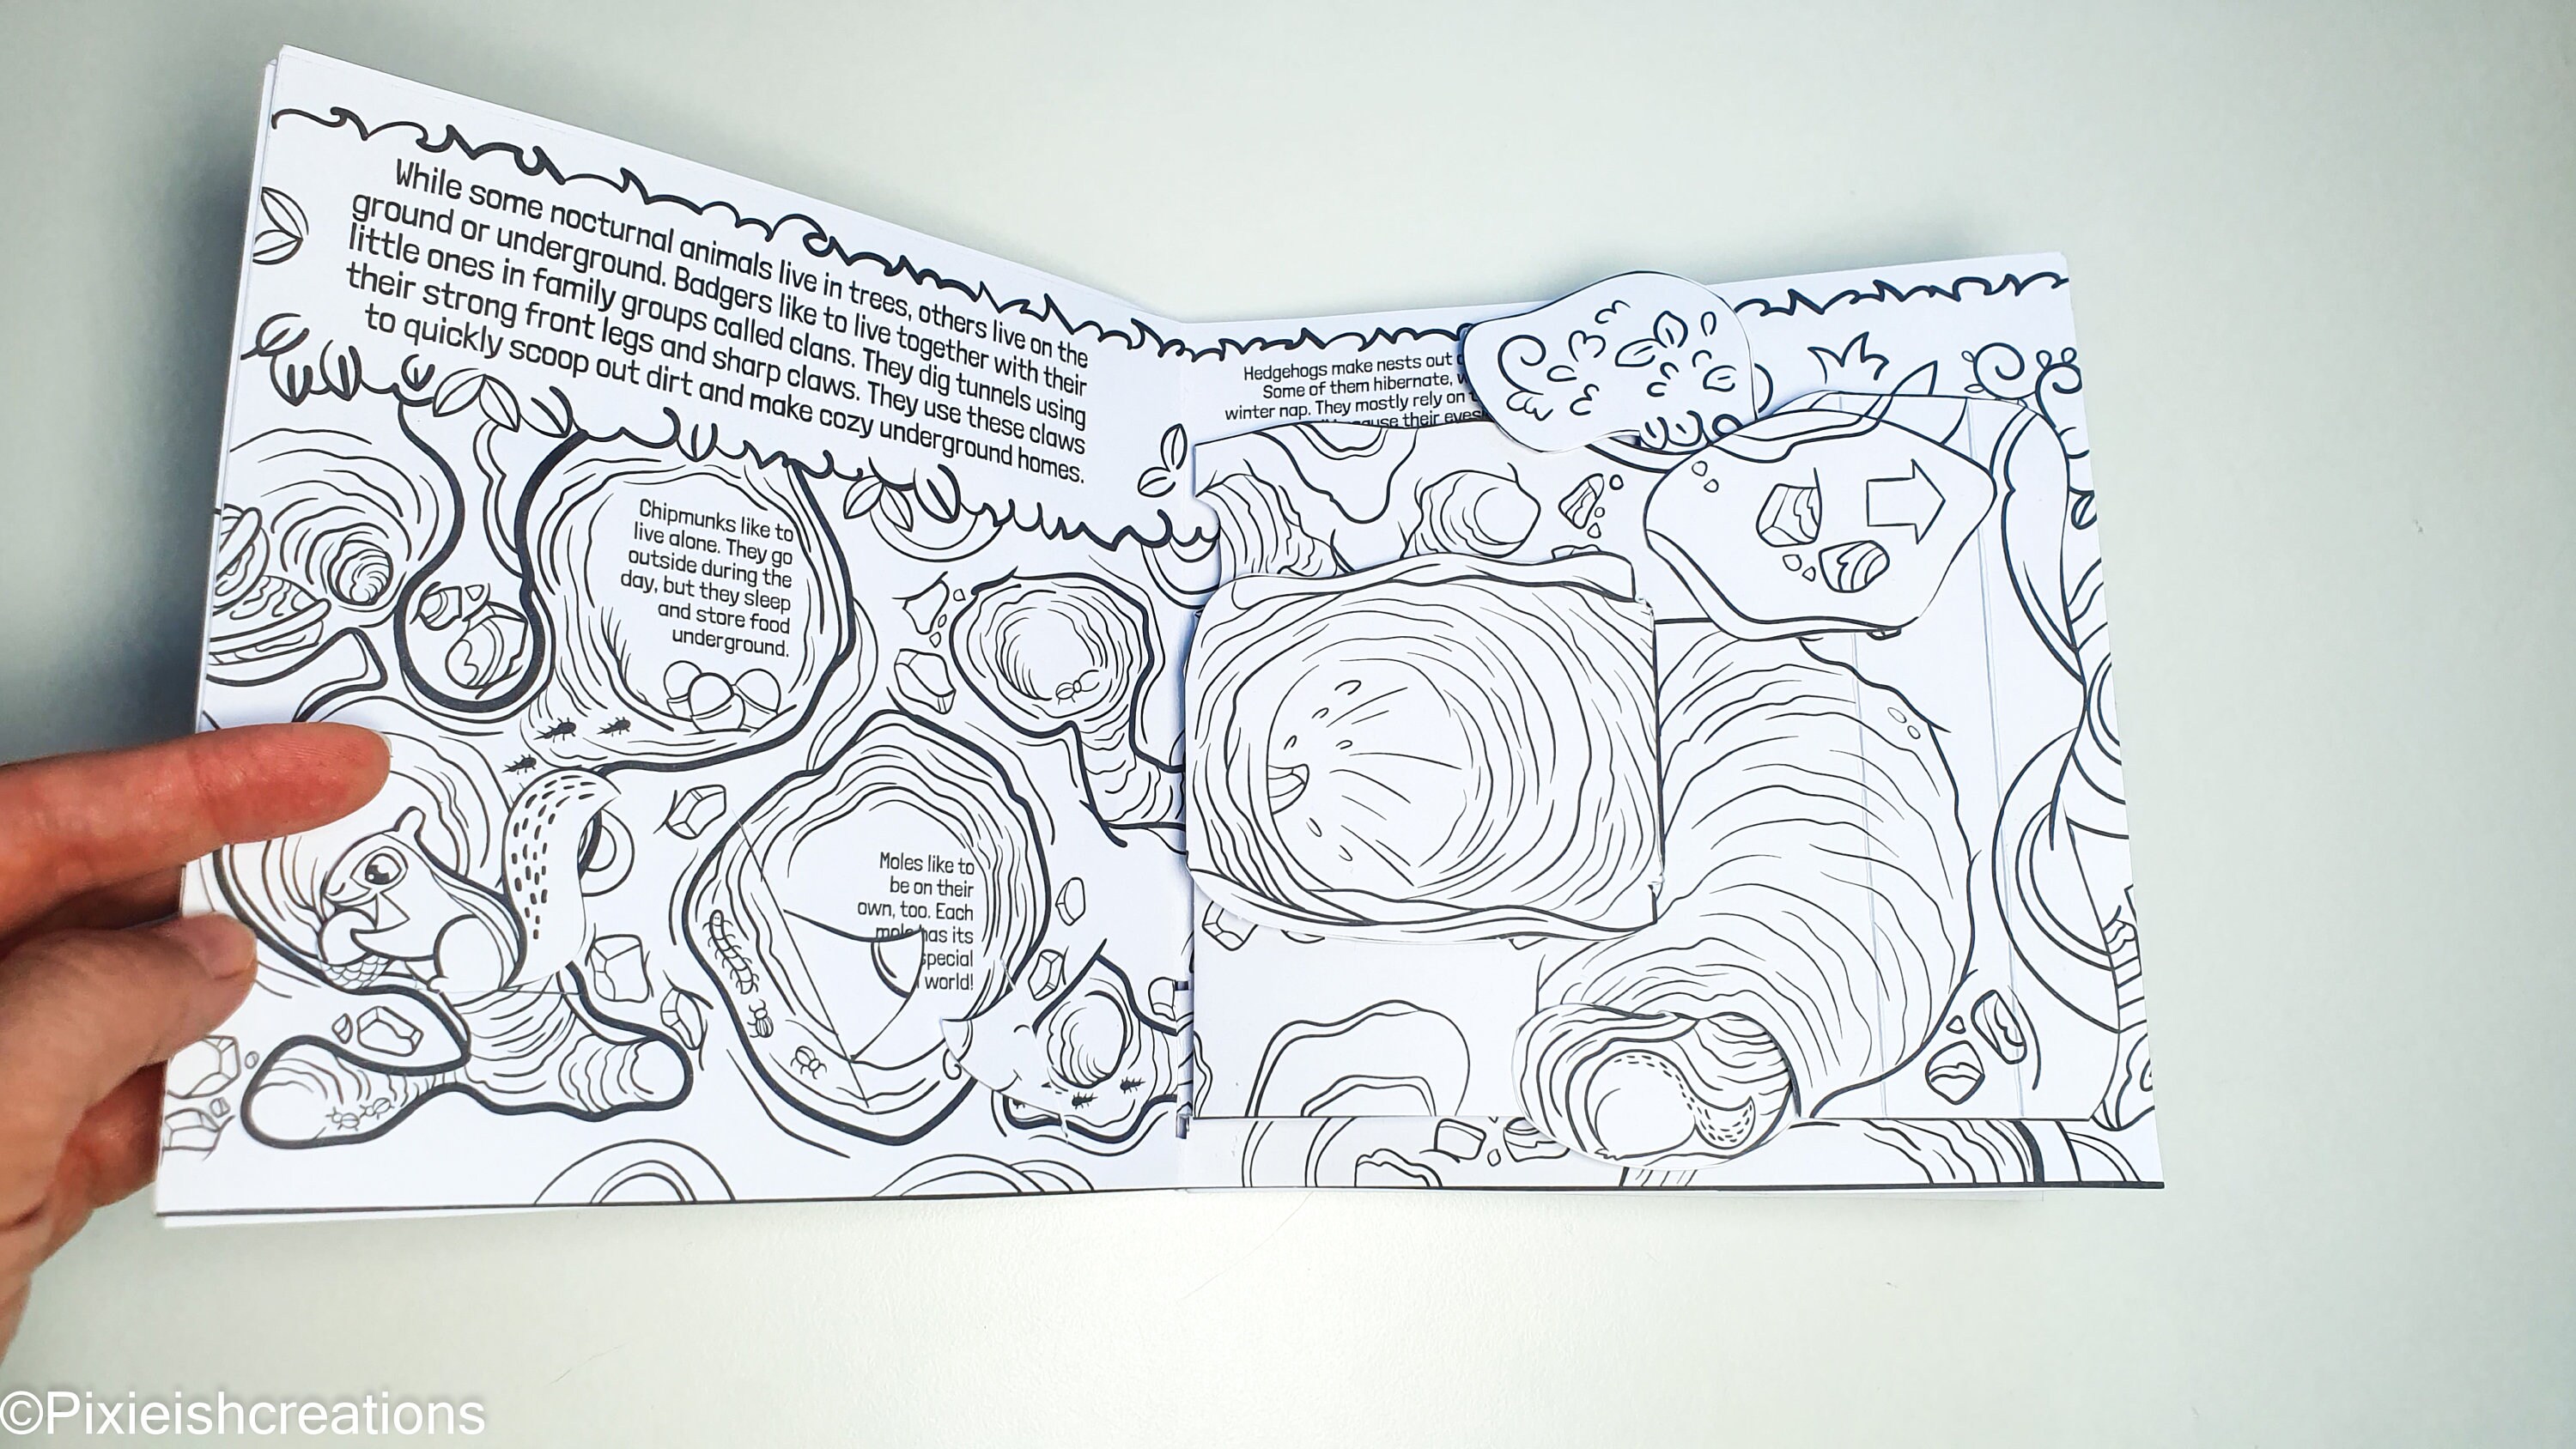 While some nocturnal animals live in trees, others live on the
ground or underground. Badgers like to live together with their
little ones in family groups called clans. They dig tunnels using
their strong front legs and sharp claws. They use these claws
to quickly scoop out dirt and make cozy underground homes.
Chipmunks like to
live alone. They go
outside during the
day, but they sleep
and store food
underground.
Moles like to
be on their
own, too. Each
mole has its
special
world!
Hedgehogs make nests out
Some of them hibernate,
winter nap. They mostly rely on
their
©Pixieishcreations